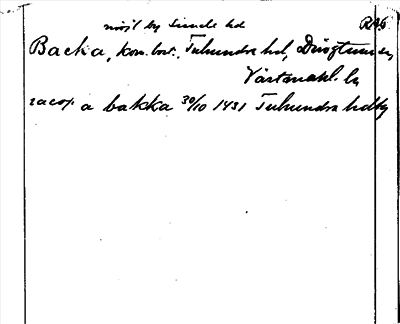 möjl by Simtl hd RA6
Backa, kon. bot., Tuhundra hd, Dingtuna sn,
Västmanl. län
iacop a bakka 30/10 1431 Tuhundra hdby